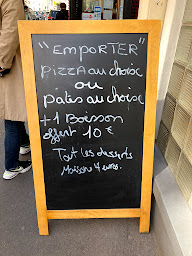 "EMPORTER"
PIZZA au choix
ou
pâtes au choix
+1 Boisson
offert 10 €
Tout les desserts
Maison 4 euros.